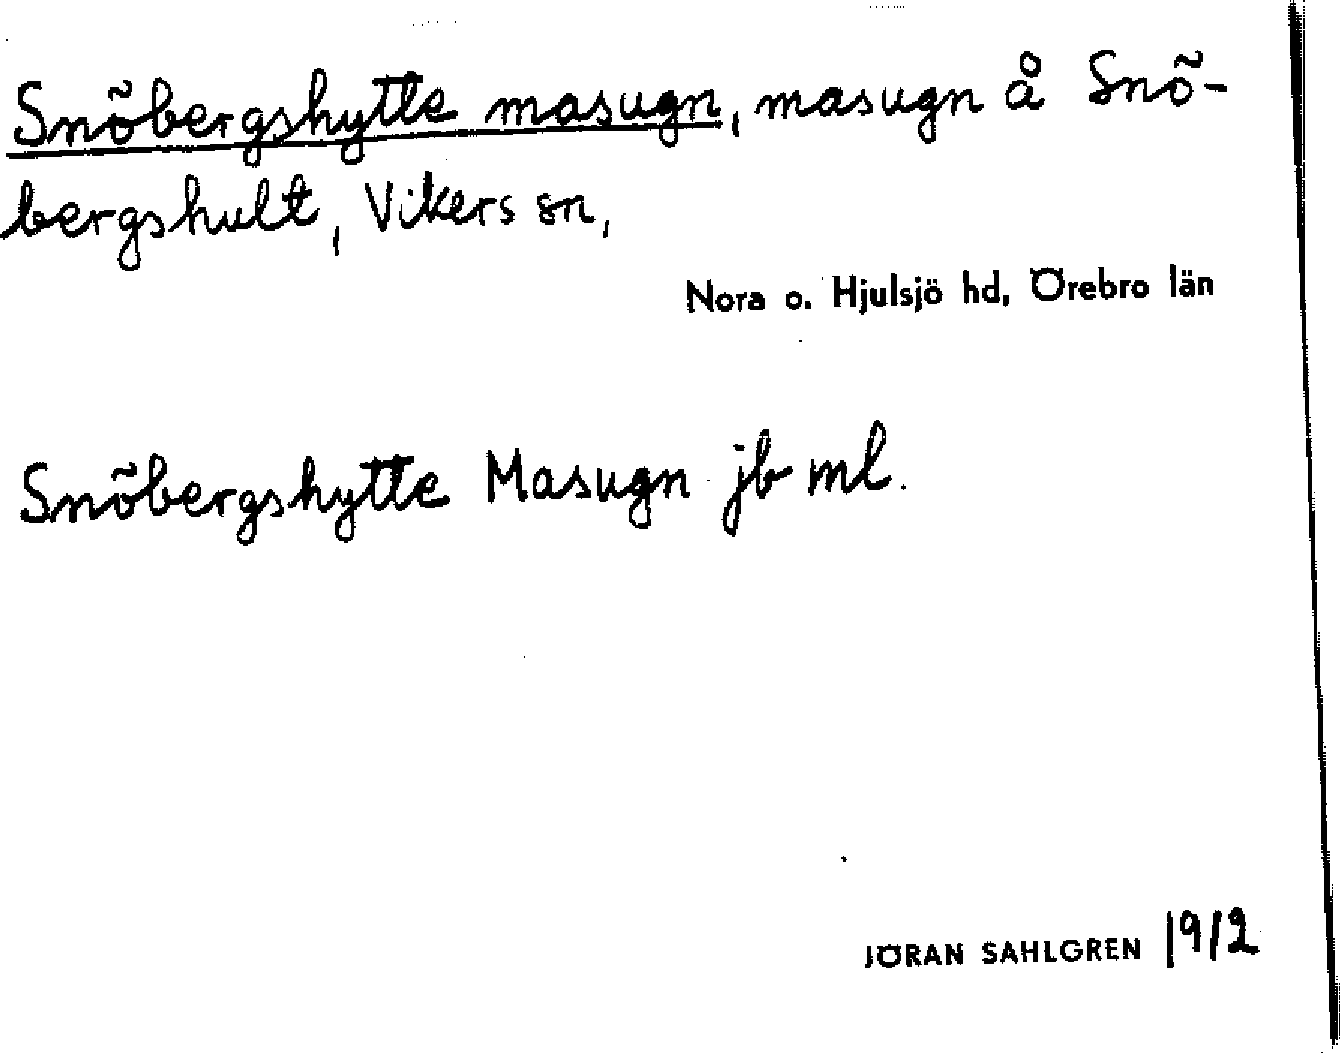 Snöbergshytte masugn, masugn å Snö-
bergshult, Vikers sn,
Nora o. Hjulsjö hd, Örebro län
Snöbergshytte Masugn jb ml.
JÖRAN SAHLGREN 1912